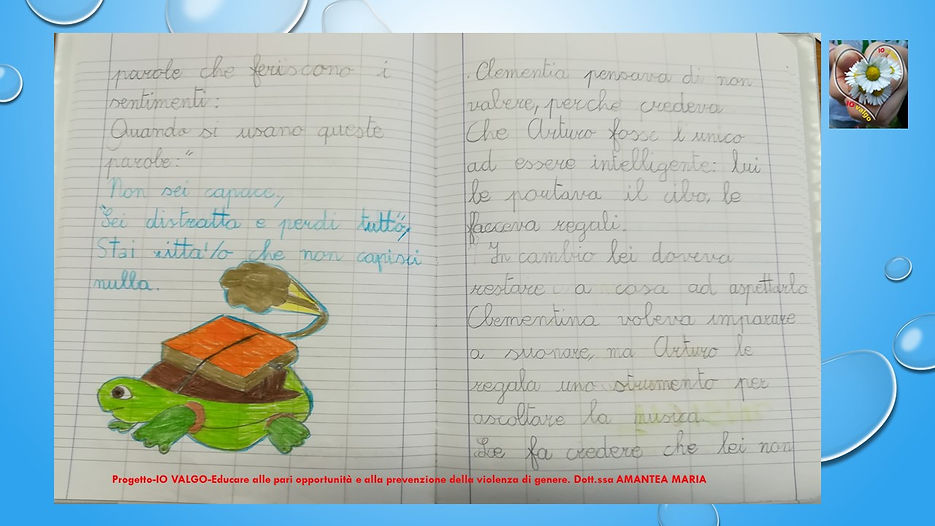 parole che feriscono i
sentimenti:
Quando si usano queste
parole:"
Non sei capace,
"Sei distratta e perdi tutto",
Stai zitta!/o che non capisci
nulla.
Clementia pensava di non
valere, perchè credeva
Che Arturo fosse l'unico
ad essere intelligente: lui
le portava il cibo, le
facceva regali.
In cambio lei doveva
restare a casa ad aspettarlo
Clementina voleva imparare
a suonare, ma Arturo le
regala uno strumento per
ascoltare la musica
Le fa credere che lei non
Progetto-IO VALGO-Educare alle pari opportunità e alla prevenzione della violenza di genere. Dott.ssa AMANTEA MARIA
IO
IO valgo